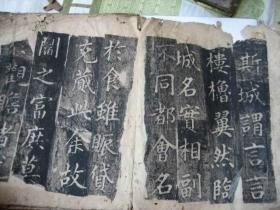 斯城謂言言
樓櫓翼然臨
城名實相副
不同都會名
於食雖賑貸
充蔵此余故
之富庶莫
觀瞻者